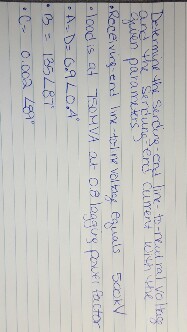 Determine the sending-end line-to-neutral voltage
and the sending-end current with the
given parameters
• Receiving end line-to-line voltage equals 500kV
• load is at 750MVA at 0.8 lagging power factor
• A=D= 0.9∠0.4°
• B = 135∠87°
• C= 0.002∠89°